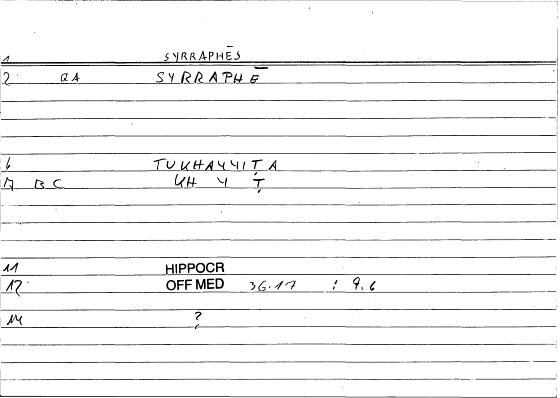 1 SYRRAPHĒS
2 QA SYRRAPHĒ
6 TUKHAYYIṬA
BC KH Y Ṭ
11 HIPPOCR
12 OFF MED 36.17 : 9.6
14 ?